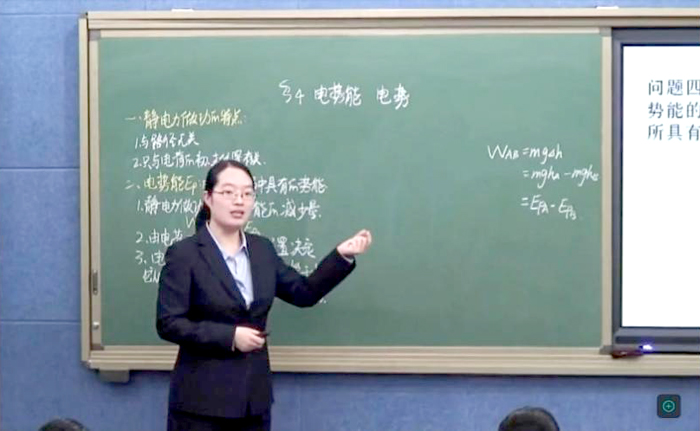 §4 电势能 电势
一.静电力做功的特点:
1.与路径无关
2.只与电荷的初、末位置有关.
二、电势能Ep: 中具有的势能
1.静电力做的 能的减少量.
2.由电荷 置决定
3、电
WAB=mgΔh
=mghA-mghB
=EPA-EPB
问题四
势能的
所具有